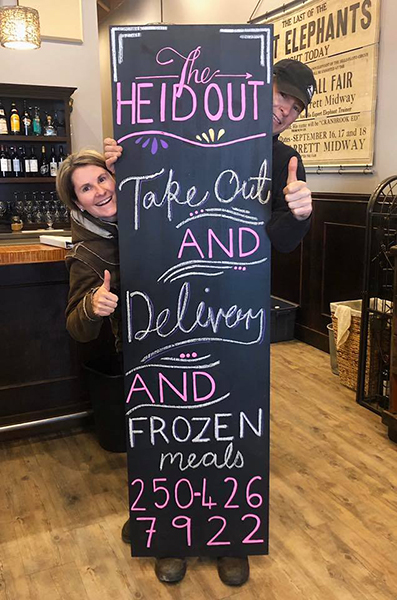 The
HEID OUT
Take Out
AND
Delivery
AND
FROZEN
meals
250-426
7922
THE LAST OF THE
ELEPHANTS
NIGHT TODAY
FALL FAIR
PARRETT Midway
"CRANBROOK ED"
DATES-SEPTEMBER 16, 17 and 18
PARRETT MIDWAY